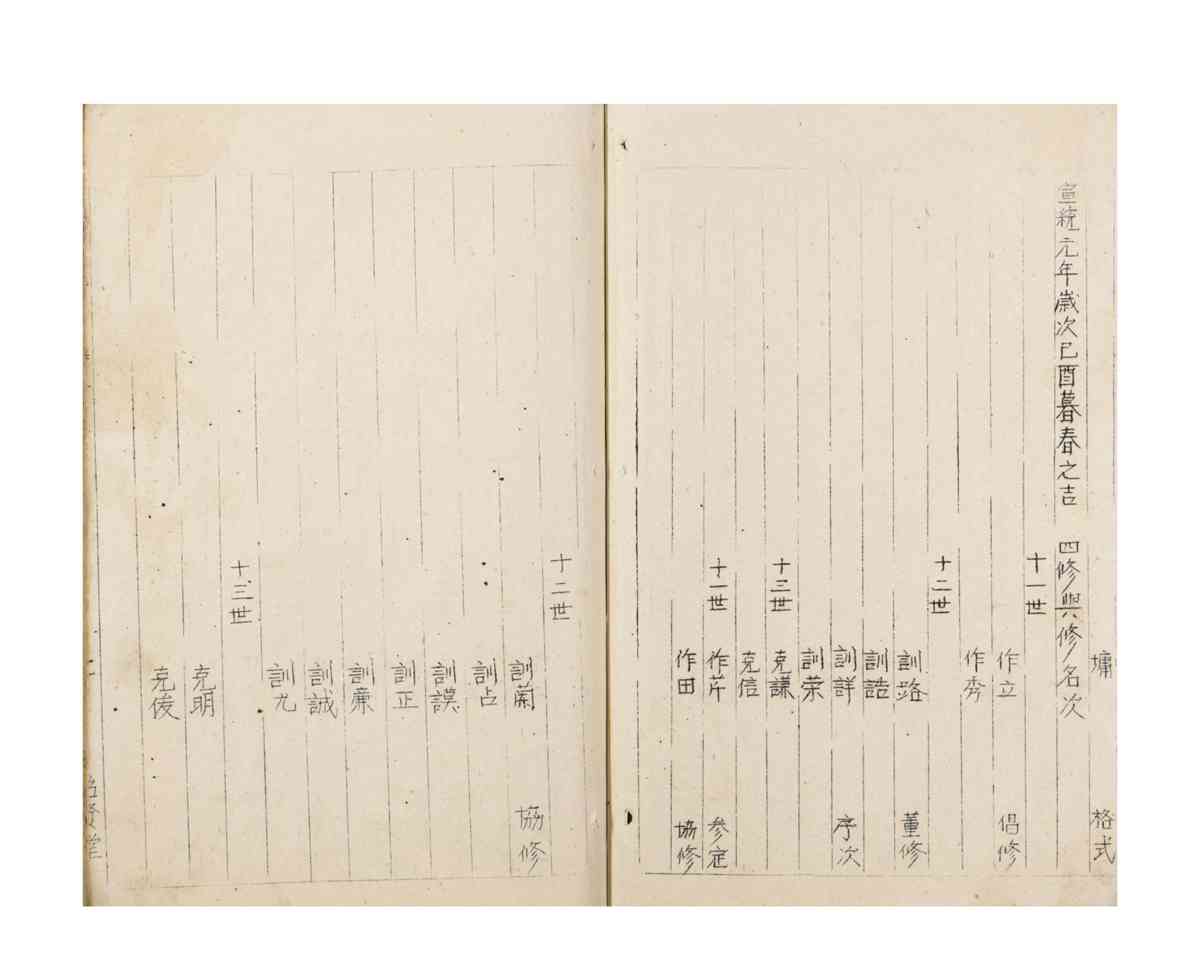 墉 格式
宣統元年歲次己酉暮春之吉 四修與修名次
十一世
作立 倡修
作秀
十二世
訓路 董修
訓誥
訓詳 序次
訓荣
十三世
克謙
克信
十一世
作芹 參定
作田 協修
十二世
訓蘭 協修
訓占
訓謨
訓正
訓廉
訓誠
訓尤
十三世
克明
克俊